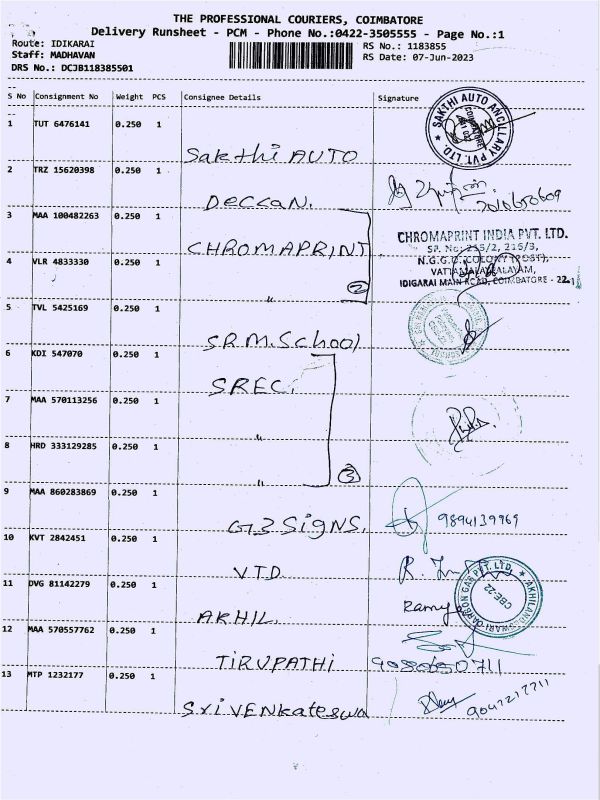 THE PROFESSIONAL COURIERS, COIMBATORE
Delivery Runsheet - PCM - Phone No.:0422-3505555 - Page No.:1
Route: IDIKARAI
RS No.: 1183855
Staff: MADHAVAN
RS Date: 07-Jun-2023
DRS No.: DCJB118385501
S No Consignment No Weight PCS Consignee Details Signature
1 TUT 6476141 0.250 1
Sakthi AUTO
SAKTHI AUTO ANCILLARY PVT. LTD.
COIMBATORE
2 TRZ 15620398 0.250 1
DECCAN.
3 MAA 100482263 0.250 1
CHROMAPRINT
CHROMAPRINT INDIA PVT. LTD.
SF. No: 255/2, 215/3,
N.G.G.O. COLONY (POST),
VATTAMALAIPALAYAM,
IDIGARAI MAIN ROAD, COIMBATORE - 22.
4 VLR 4833330 0.250 1
" 2
5 TVL 5425169 0.250 1
S.R.M. School
6 KDI 547070 0.250 1
SREC.
7 MAA 570113256 0.250 1
"
8 HRD 333129285 0.250 1
" 3
9 MAA 860283869 0.250 1
G3 SigNS. 9894139969
10 KVT 2842451 0.250 1
V.T.D.
11 DVG 81142279 0.250 1
AKHIL. Ramy
CBE-22
12 MAA 570557762 0.250 1
TIRUPATHI
13 MTP 1232177 0.250 1
Sri VENkateswa